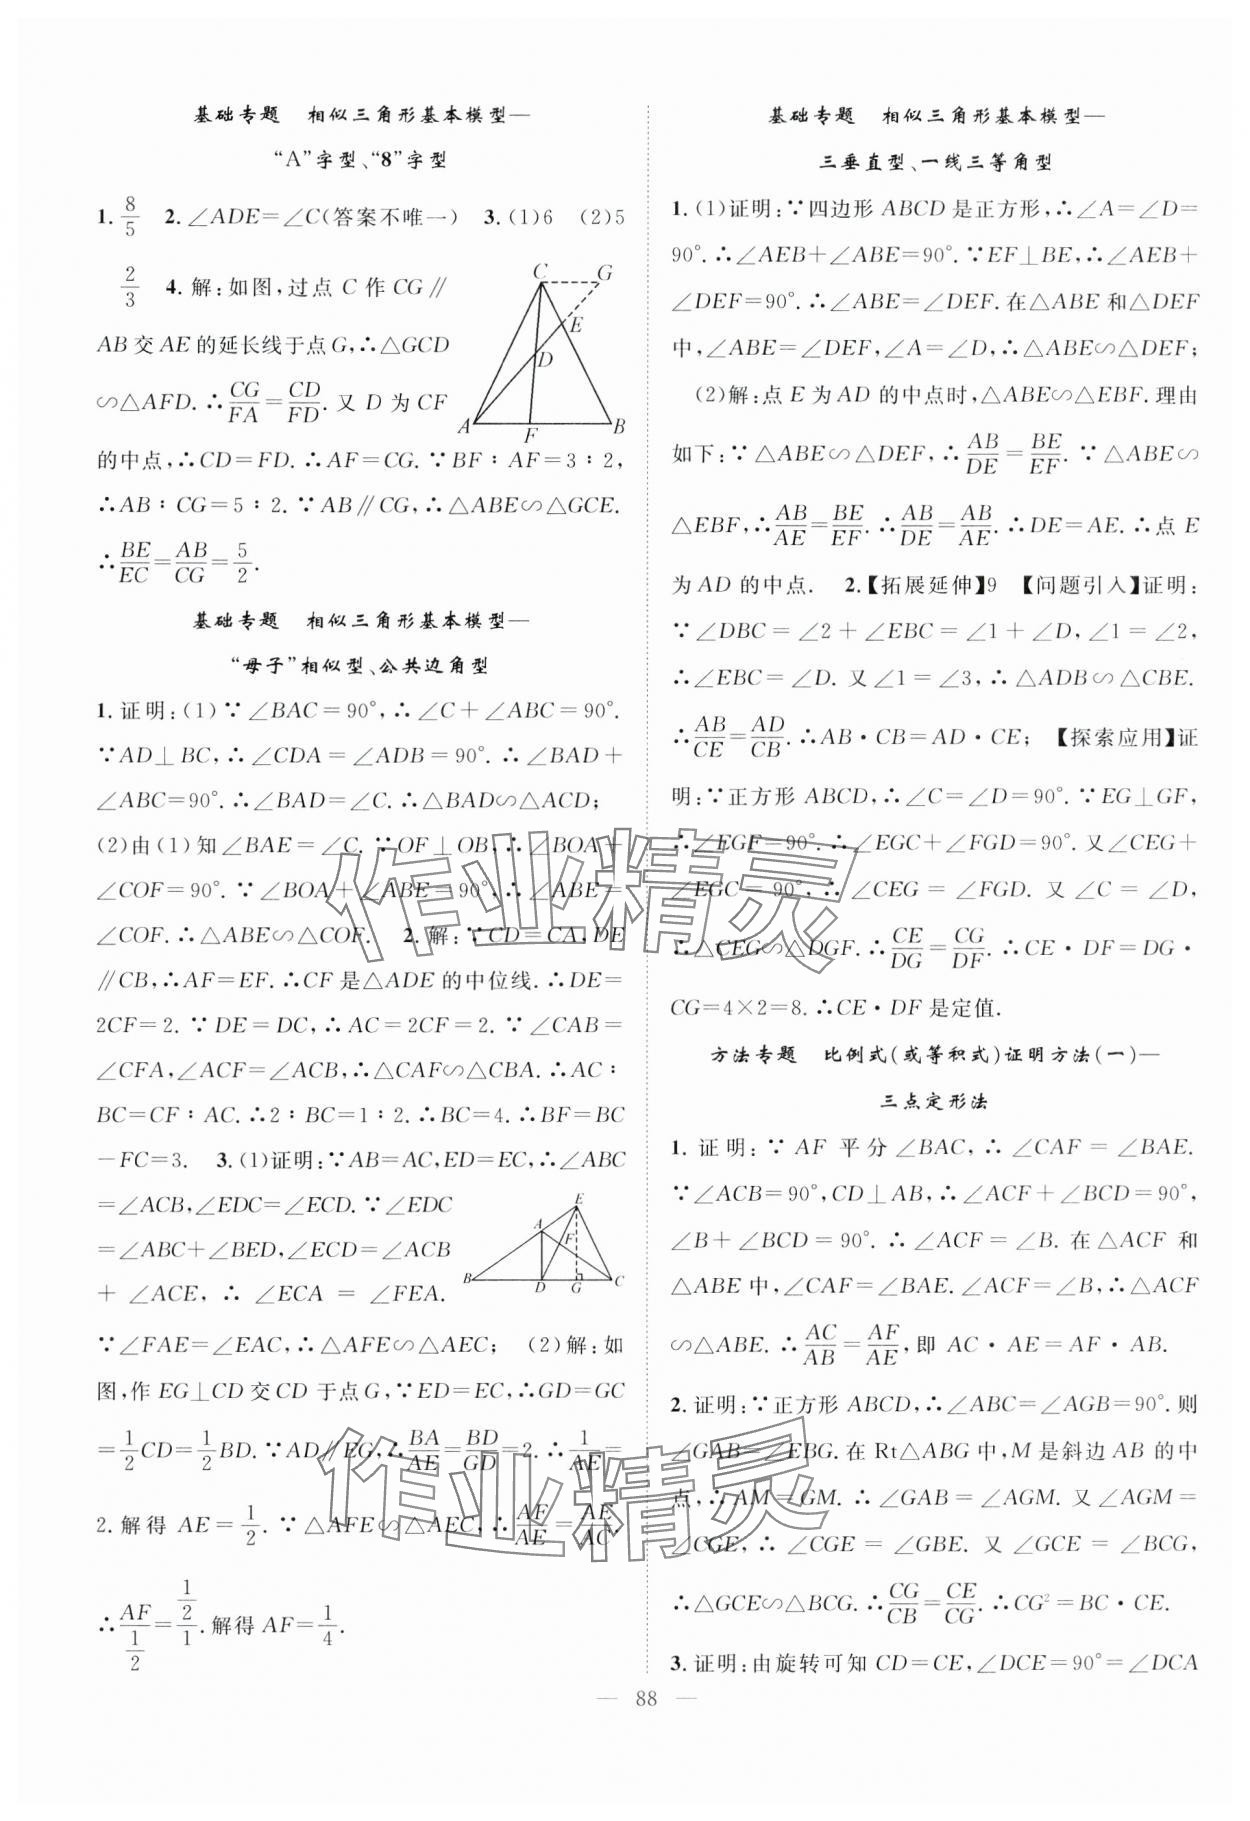 基础专题 相似三角形基本模型—
“A”字型、“8”字型
1. 8/5 2. ∠ADE=∠C(答案不唯一) 3. (1)6 (2)5
2/3 4. 解:如图,过点 C 作 CG∥
AB 交 AE 的延长线于点 G,∴△GCD
∽△AFD. ∴CG/FA=CD/FD. 又 D 为 CF
的中点,∴CD=FD. ∴AF=CG. ∵BF∶AF=3∶2,
∴AB∶CG=5∶2. ∵AB∥CG,∴△ABE∽△GCE.
∴BE/EC=AB/CG=5/2.
C G E D A F B
基础专题 相似三角形基本模型—
“母子”相似型、公共边角型
1. 证明:(1)∵∠BAC=90°,∴∠C+∠ABC=90°.
∵AD⊥BC,∴∠CDA=∠ADB=90°. ∴∠BAD+
∠ABC=90°. ∴∠BAD=∠C. ∴△BAD∽△ACD;
(2)由(1)知∠BAE=∠C. ∵OF⊥OB,∴∠BOA+
∠COF=90°. ∵∠BOA+∠ABE=90°,∴∠ABE=
∠COF. ∴△ABE∽△COF. 2. 解:∵CD=CA,DE
∥CB,∴AF=EF. ∴CF是△ADE的中位线. ∴DE=
2CF=2. ∵DE=DC,∴AC=2CF=2. ∵∠CAB=
∠CFA,∠ACF=∠ACB,∴△CAF∽△CBA. ∴AC∶
BC=CF∶AC. ∴2∶BC=1∶2. ∴BC=4. ∴BF=BC
-FC=3. 3. (1)证明:∵AB=AC,ED=EC,∴∠ABC
=∠ACB,∠EDC=∠ECD. ∵∠EDC
=∠ABC+∠BED,∠ECD=∠ACB
+∠ACE,∴∠ECA=∠FEA.
E A F B D G C
∵∠FAE=∠EAC,∴△AFE∽△AEC; (2)解:如
图,作EG⊥CD交CD于点G,∵ED=EC,∴GD=GC
=1/2CD=1/2BD. ∵AD∥EG,∴BA/AE=BD/GD=2. ∴1/AE=
2. 解得 AE=1/2. ∵△AFE∽△AEC,∴AF/AE=AE/AC.
∴AF/(1/2)=(1/2)/1. 解得AF=1/4.
基础专题 相似三角形基本模型—
三垂直型、一线三等角型
1. (1)证明:∵四边形ABCD是正方形,∴∠A=∠D=
90°. ∴∠AEB+∠ABE=90°. ∵EF⊥BE,∴∠AEB+
∠DEF=90°. ∴∠ABE=∠DEF. 在△ABE和△DEF
中,∠ABE=∠DEF,∠A=∠D,∴△ABE∽△DEF;
(2)解:点E为AD的中点时,△ABE∽△EBF. 理由
如下:∵△ABE∽△DEF,∴AB/DE=BE/EF. ∵△ABE∽
△EBF,∴AB/AE=BE/EF. ∴AB/DE=AB/AE. ∴DE=AE. ∴点E
为AD的中点. 2.【拓展延伸】9 【问题引入】证明:
∵∠DBC=∠2+∠EBC=∠1+∠D,∠1=∠2,
∴∠EBC=∠D. 又∠1=∠3,∴△ABD∽△CBE.
∴AB/CE=AD/CB. ∴AB·CB=AD·CE; 【探索应用】证
明:∵正方形ABCD,∴∠C=∠D=90°. ∵EG⊥GF,
∴∠EGF=90°. ∴∠EGC+∠FGD=90°. 又∠CEG+
∠EGC=90°,∴∠CEG=∠FGD. 又∠C=∠D,
∴△CEG∽△DGF. ∴CE/DG=CG/DF. ∴CE·DF=DG·
CG=4×2=8. ∴CE·DF是定值.
方法专题 比例式(或等积式)证明方法(一)—
三点定形法
1. 证明:∵AF平分∠BAC,∴∠CAF=∠BAE.
∵∠ACB=90°,CD⊥AB,∴∠ACF+∠BCD=90°,
∠B+∠BCD=90°. ∴∠ACF=∠B. 在△ACF和
△ABE中,∠CAF=∠BAE. ∠ACF=∠B,∴△ACF
∽△ABE. ∴AC/AB=AF/AE,即AC·AE=AF·AB.
2. 证明:∵正方形ABCD,∴∠ABC=∠AGB=90°. 则
∠GAB=∠EBG. 在Rt△ABG中,M是斜边AB的中
点,∴AM=GM. ∴∠GAB=∠AGM. 又∠AGM=
∠CGE,∴∠CGE=∠GBE. 又∠GCE=∠BCG,
∴△GCE∽△BCG. ∴CG/CB=CE/CG. ∴CG²=BC·CE.
3. 证明:由旋转可知CD=CE,∠DCE=90°=∠DCA
— 88 —
作业精灵
作业精灵